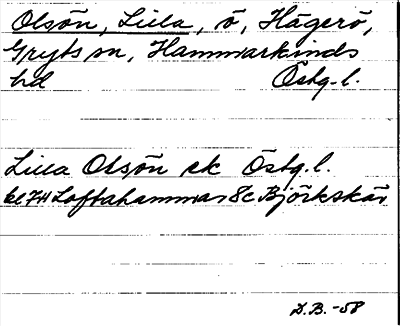 Olsön, Lilla, ö, Hägerö,
Gryts sn, Hammarkinds
hd Östg.l.
Lilla Olsön ek Östg.l.
bl 7H Loftahammar 8c Björkskär
D.B.-58